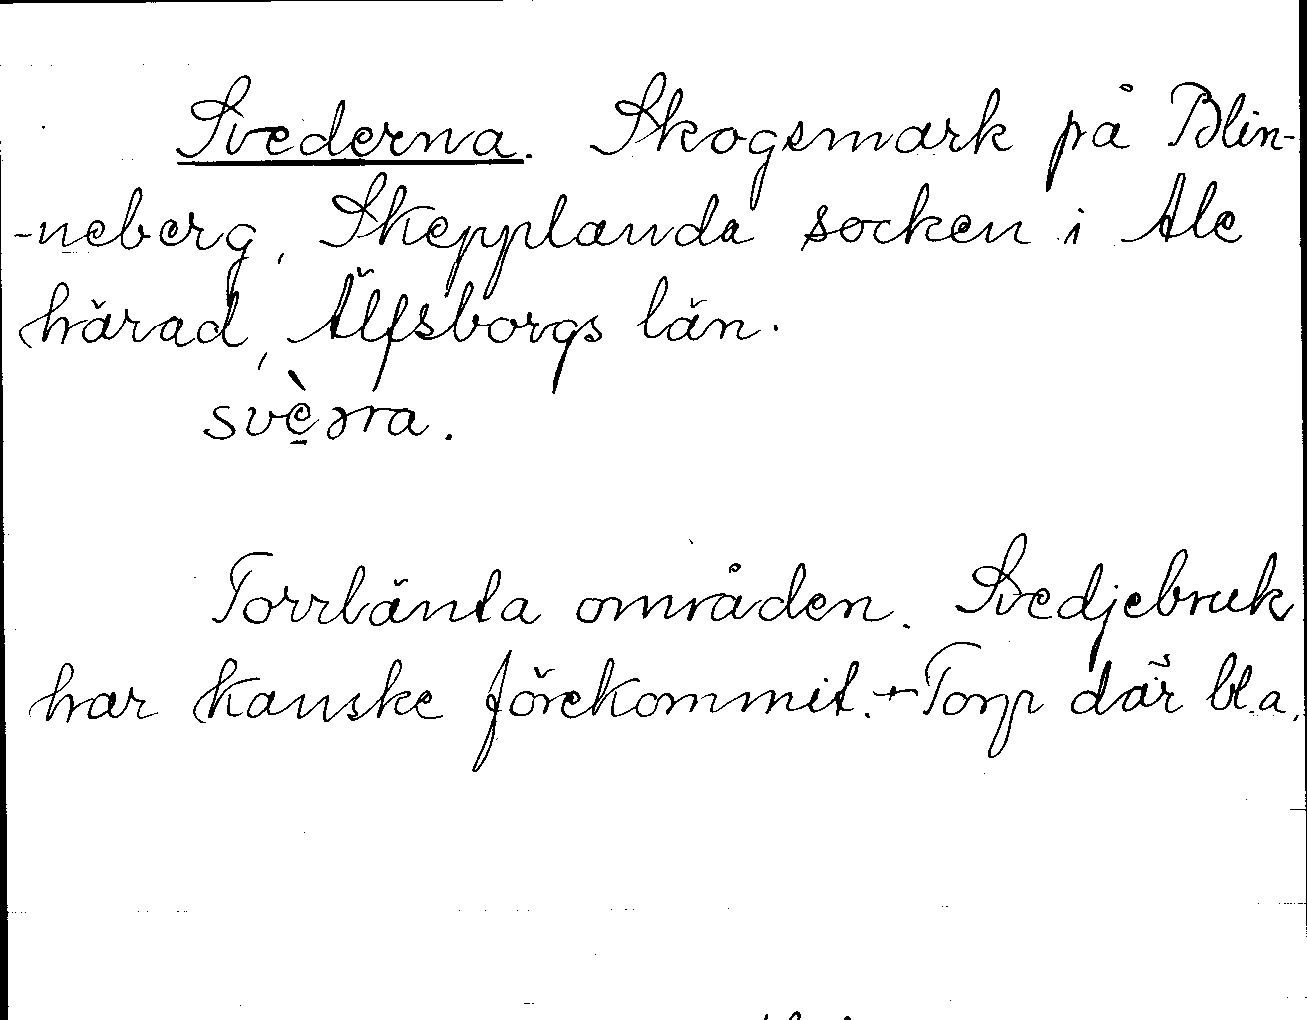 Svederna. Skogsmark på Blin-
-neberg, Skepplanda socken i Ale
härad, Älfsborgs län.
svè̱rra.
Torrlänta områden. Svedjebruk
har kanske förekommit. + Torp där bl.a.